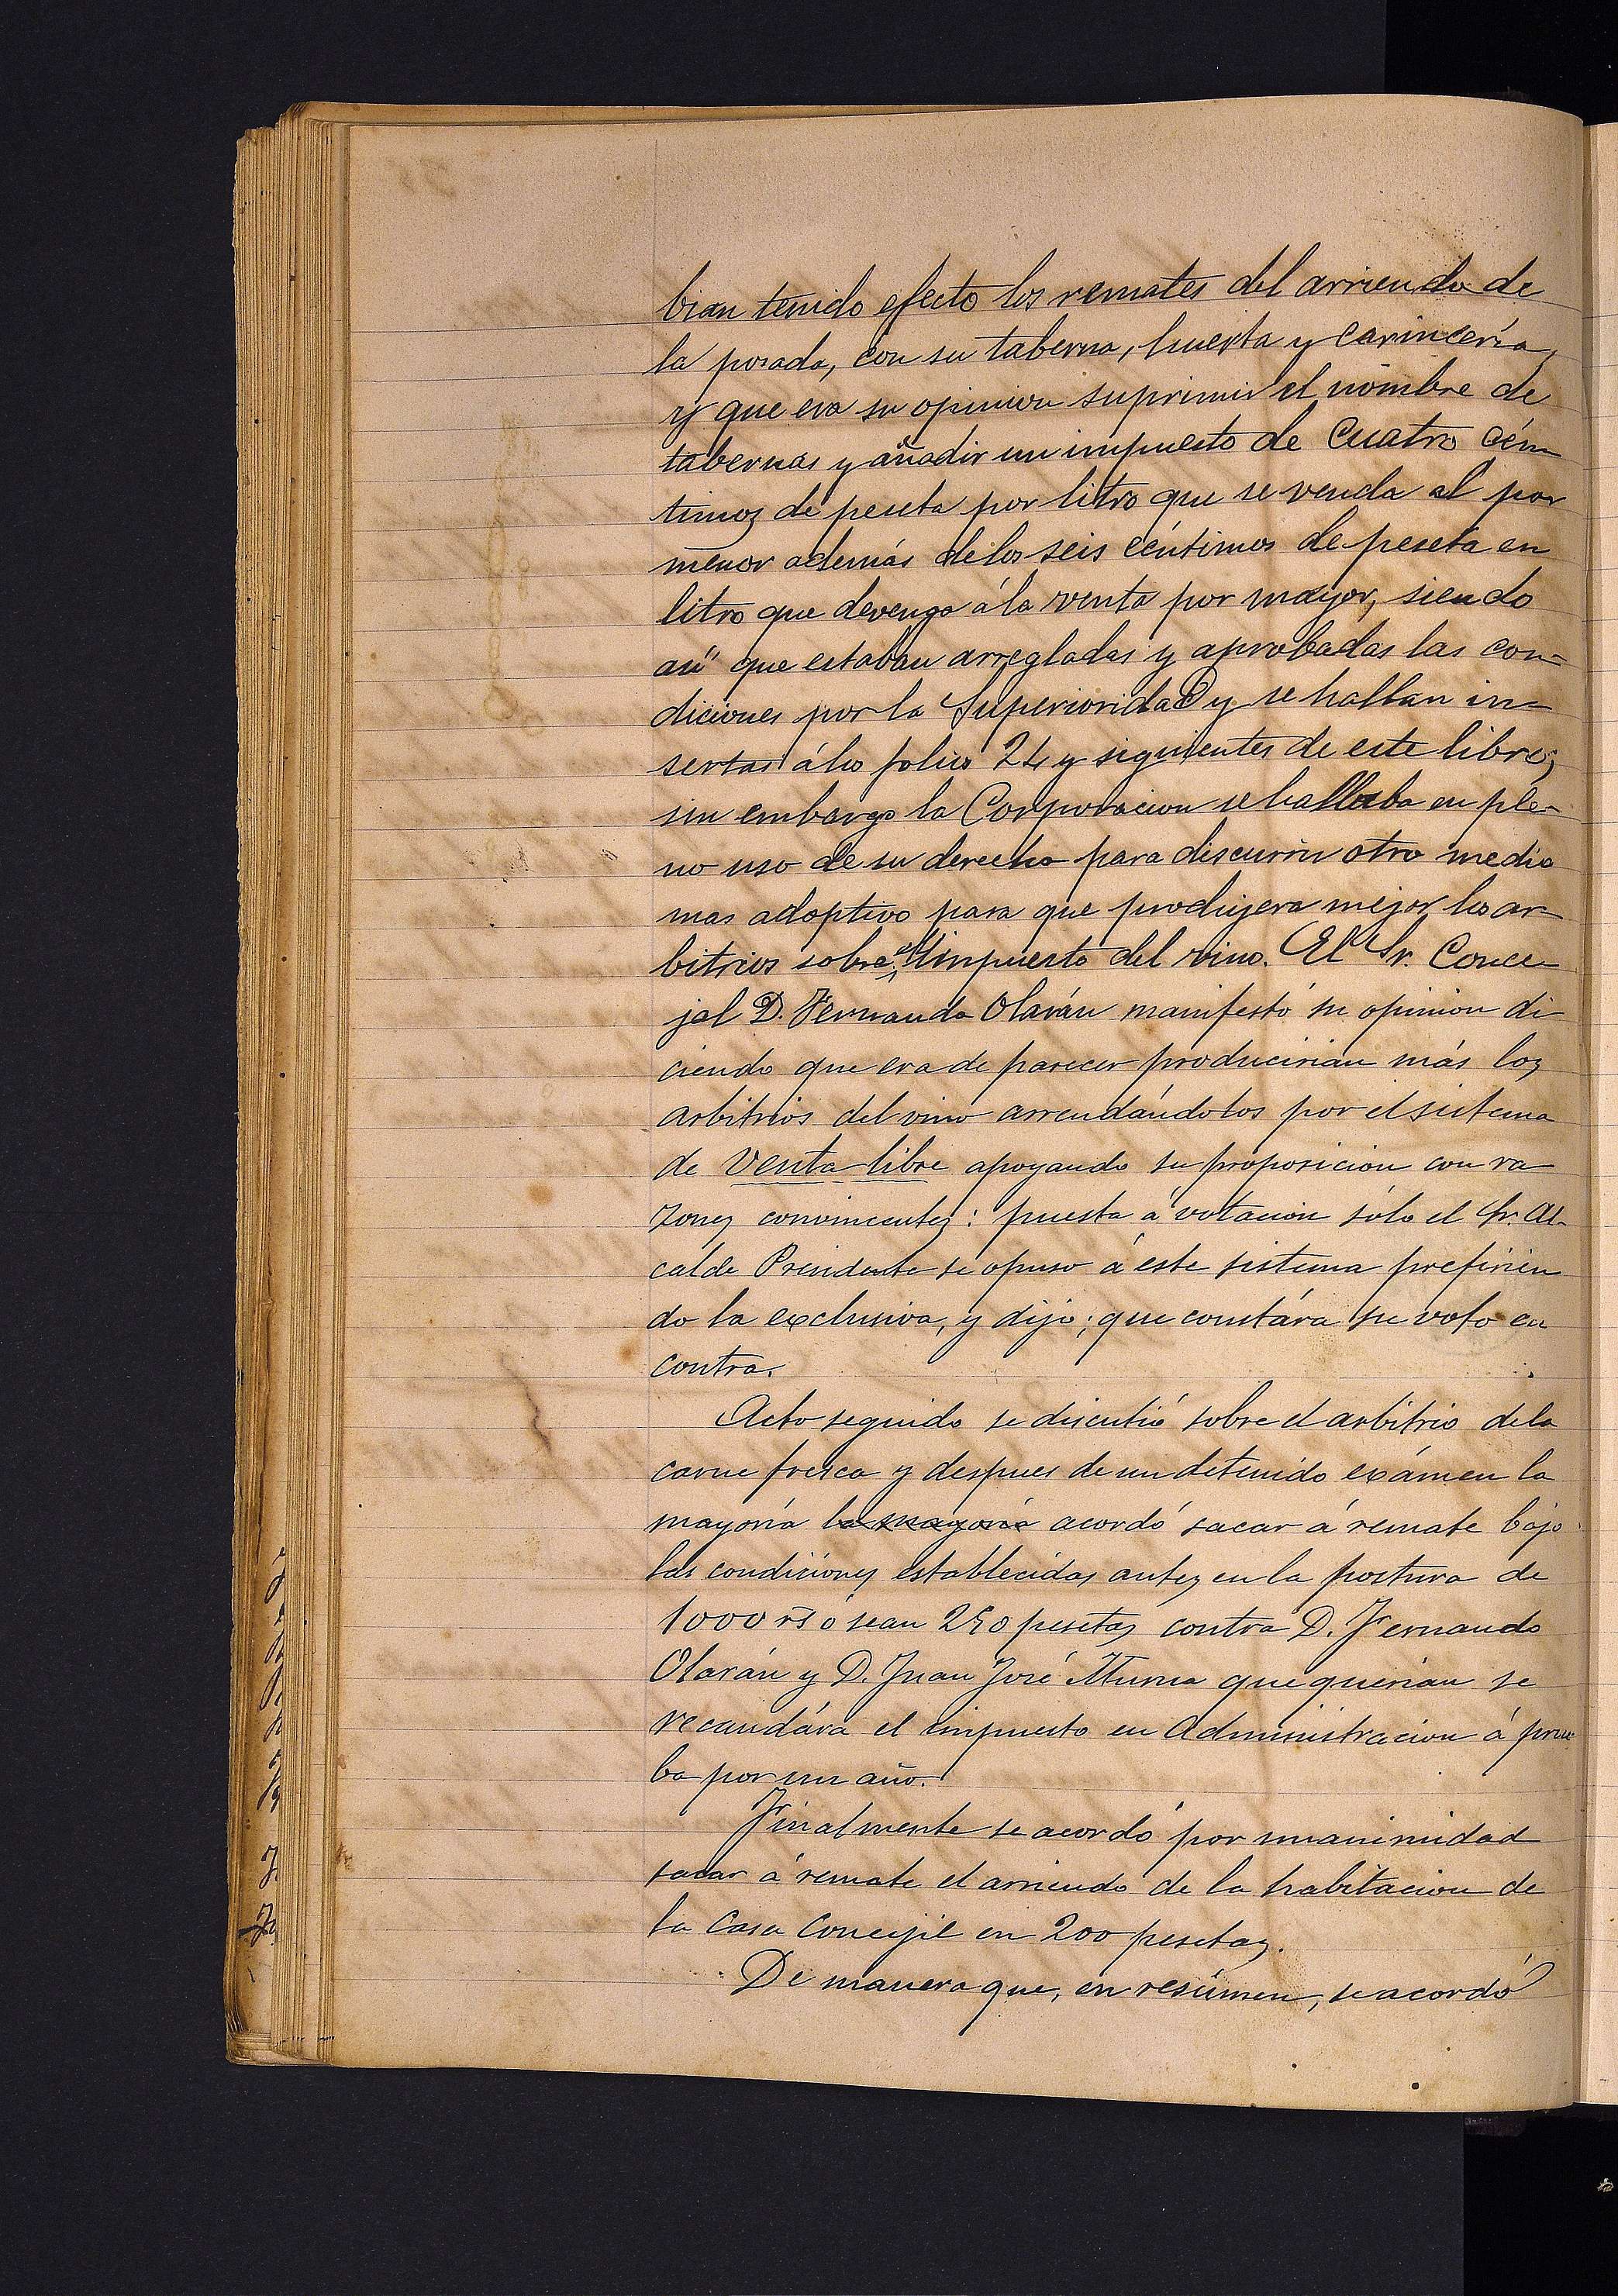 bian tenido efecto los remates del arriendo de
la posada, con su taberna, huerta y carnicería,
y que era su opinion suprimir el nombre de
tabernas y añadir un impuesto de cuatro cén
timos de peseta por litro que se venda al por
menor además de los seis céntimos de peseta en
litro que devenga á la venta por mayor, siendo
asi que estaban arregladas y aprobadas las con=
diciones por la Superioridad y se hallan in=
sertas á los folios 24 y siguientes de este libro;
sin embargo la Corporacion se hallaba en ple-
no uso de su derecho para discurrir otro medio
mas adoptivo para que produjera mejor los ar-
bitrios sobre el impuesto del vino. El Sr. Conce-
jal D. Fernando Olarán manifestó su opinion di
ciendo que era de parecer producirian más los
arbitrios del vino arrendándolos por el sistema
de venta libre apoyando su proposicion con ra
zones convincentes: puesta á votacion sólo el Sr. Al-
calde Presidente se opuso á este sistema prefirien
do la exclusiva, y dijo; que constára su voto en
contra.
Acto seguido se discutió sobre el arbitrio de la
carne fresca y despues de un detenido exámen la
mayoría la mayoría acordó sacar á remate bajo
las condiciones establecidas antes en la postura de
1000 rs ó sean 250 pesetas contra D. Fernando
Olarán y D. Juan José Murua que querian se
recaudára el impuesto en Administracion á prue
ba por un año.
Finalmente se acordó por unanimidad
sacar á remate el arriendo de la habitacion de
la Casa Concejil en 200 pesetas.
De manera que, en resúmen, se acordó